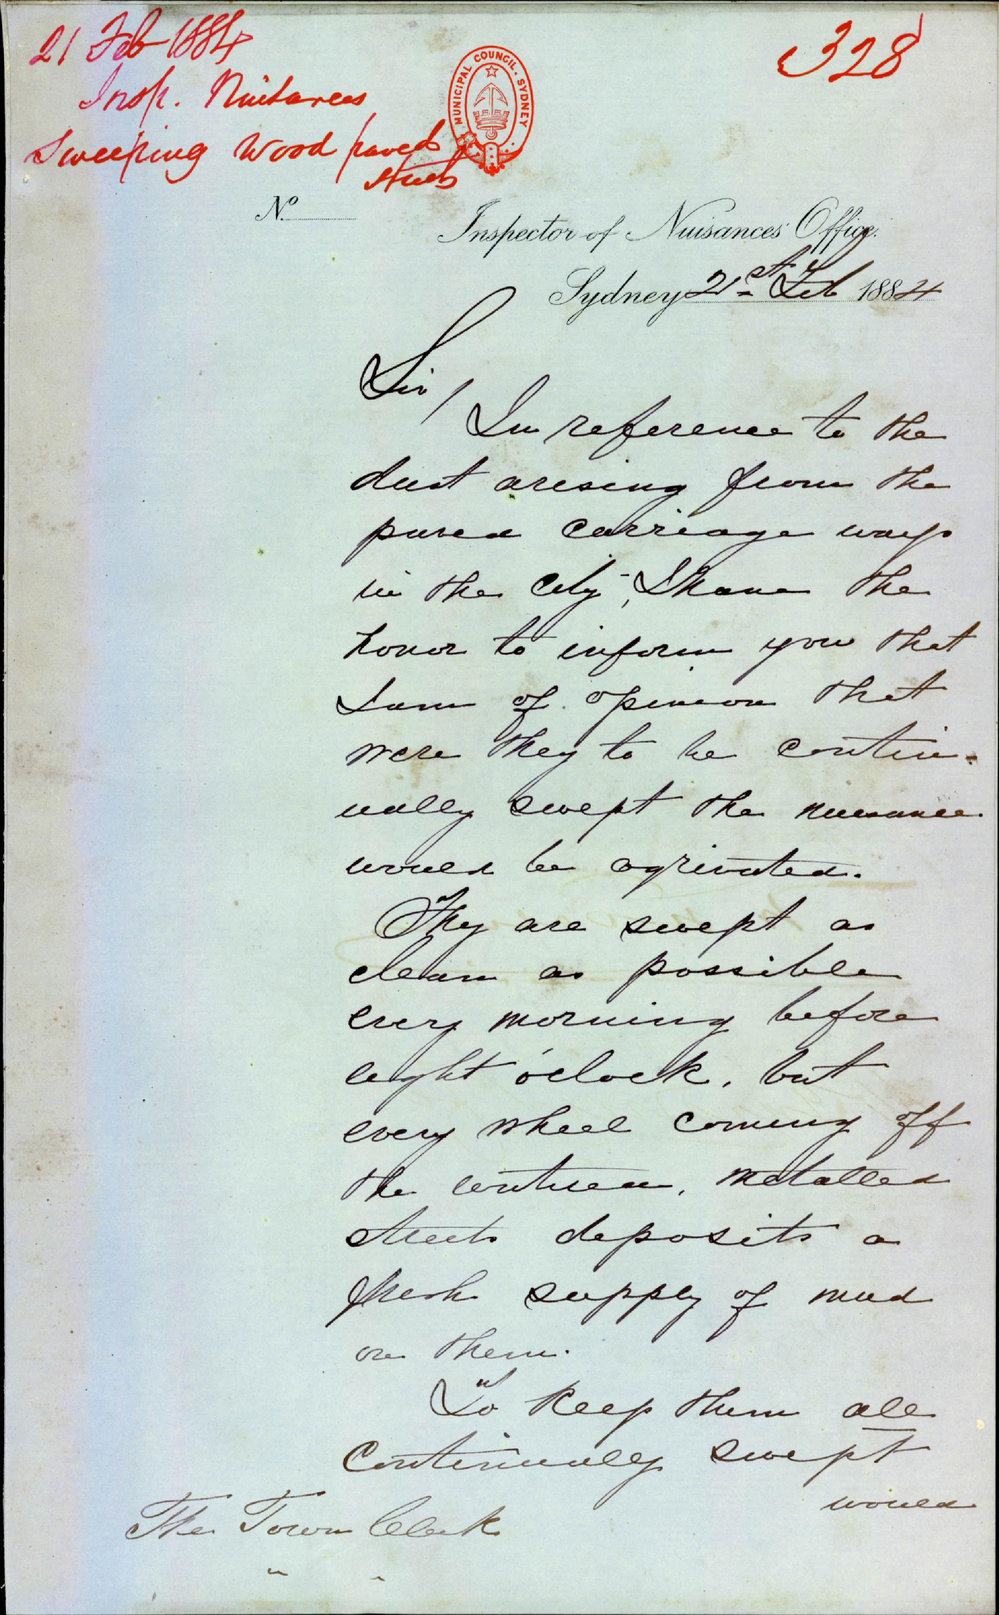 21 Feb 1884
Insp. Nuisances
Sweeping Wood paved
streets
328
MUNICIPAL COUNCIL. SYDNEY
No.
Inspector of Nuisances Office.
Sydney 21st Feb 1884
Sir/
In reference to the
dust arising from the
paved carriage ways
in the city, I have the
honor to inform you that
I am of opinion that
were they to be contin-
ually swept the nuisance
would be agrivated.
They are swept as
clean as possible
every morning before
eight o'clock, but
every wheel coming off
the metalled
streets deposits a
fresh supply of mud
on them.
To keep them all
continually swept
would
The Town Clerk